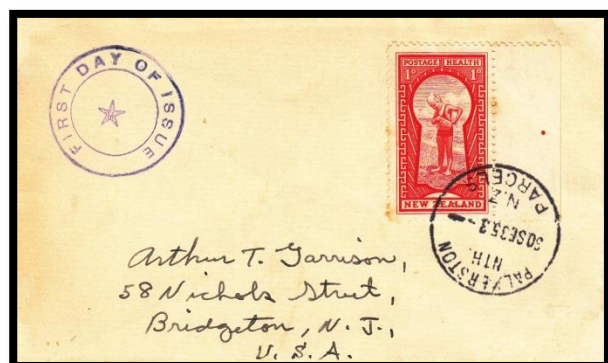 FIRST DAY OF ISSUE
POSTAGE HEALTH
1ᴰ 1ᴰ
NEW ZEALAND
PALMERSTON
NTH.
30SE35 3-
N.Z.
PARCELS
Arthur T. Garrison,
58 Nichols Street,
Bridgeton, N. J.,
U. S. A.